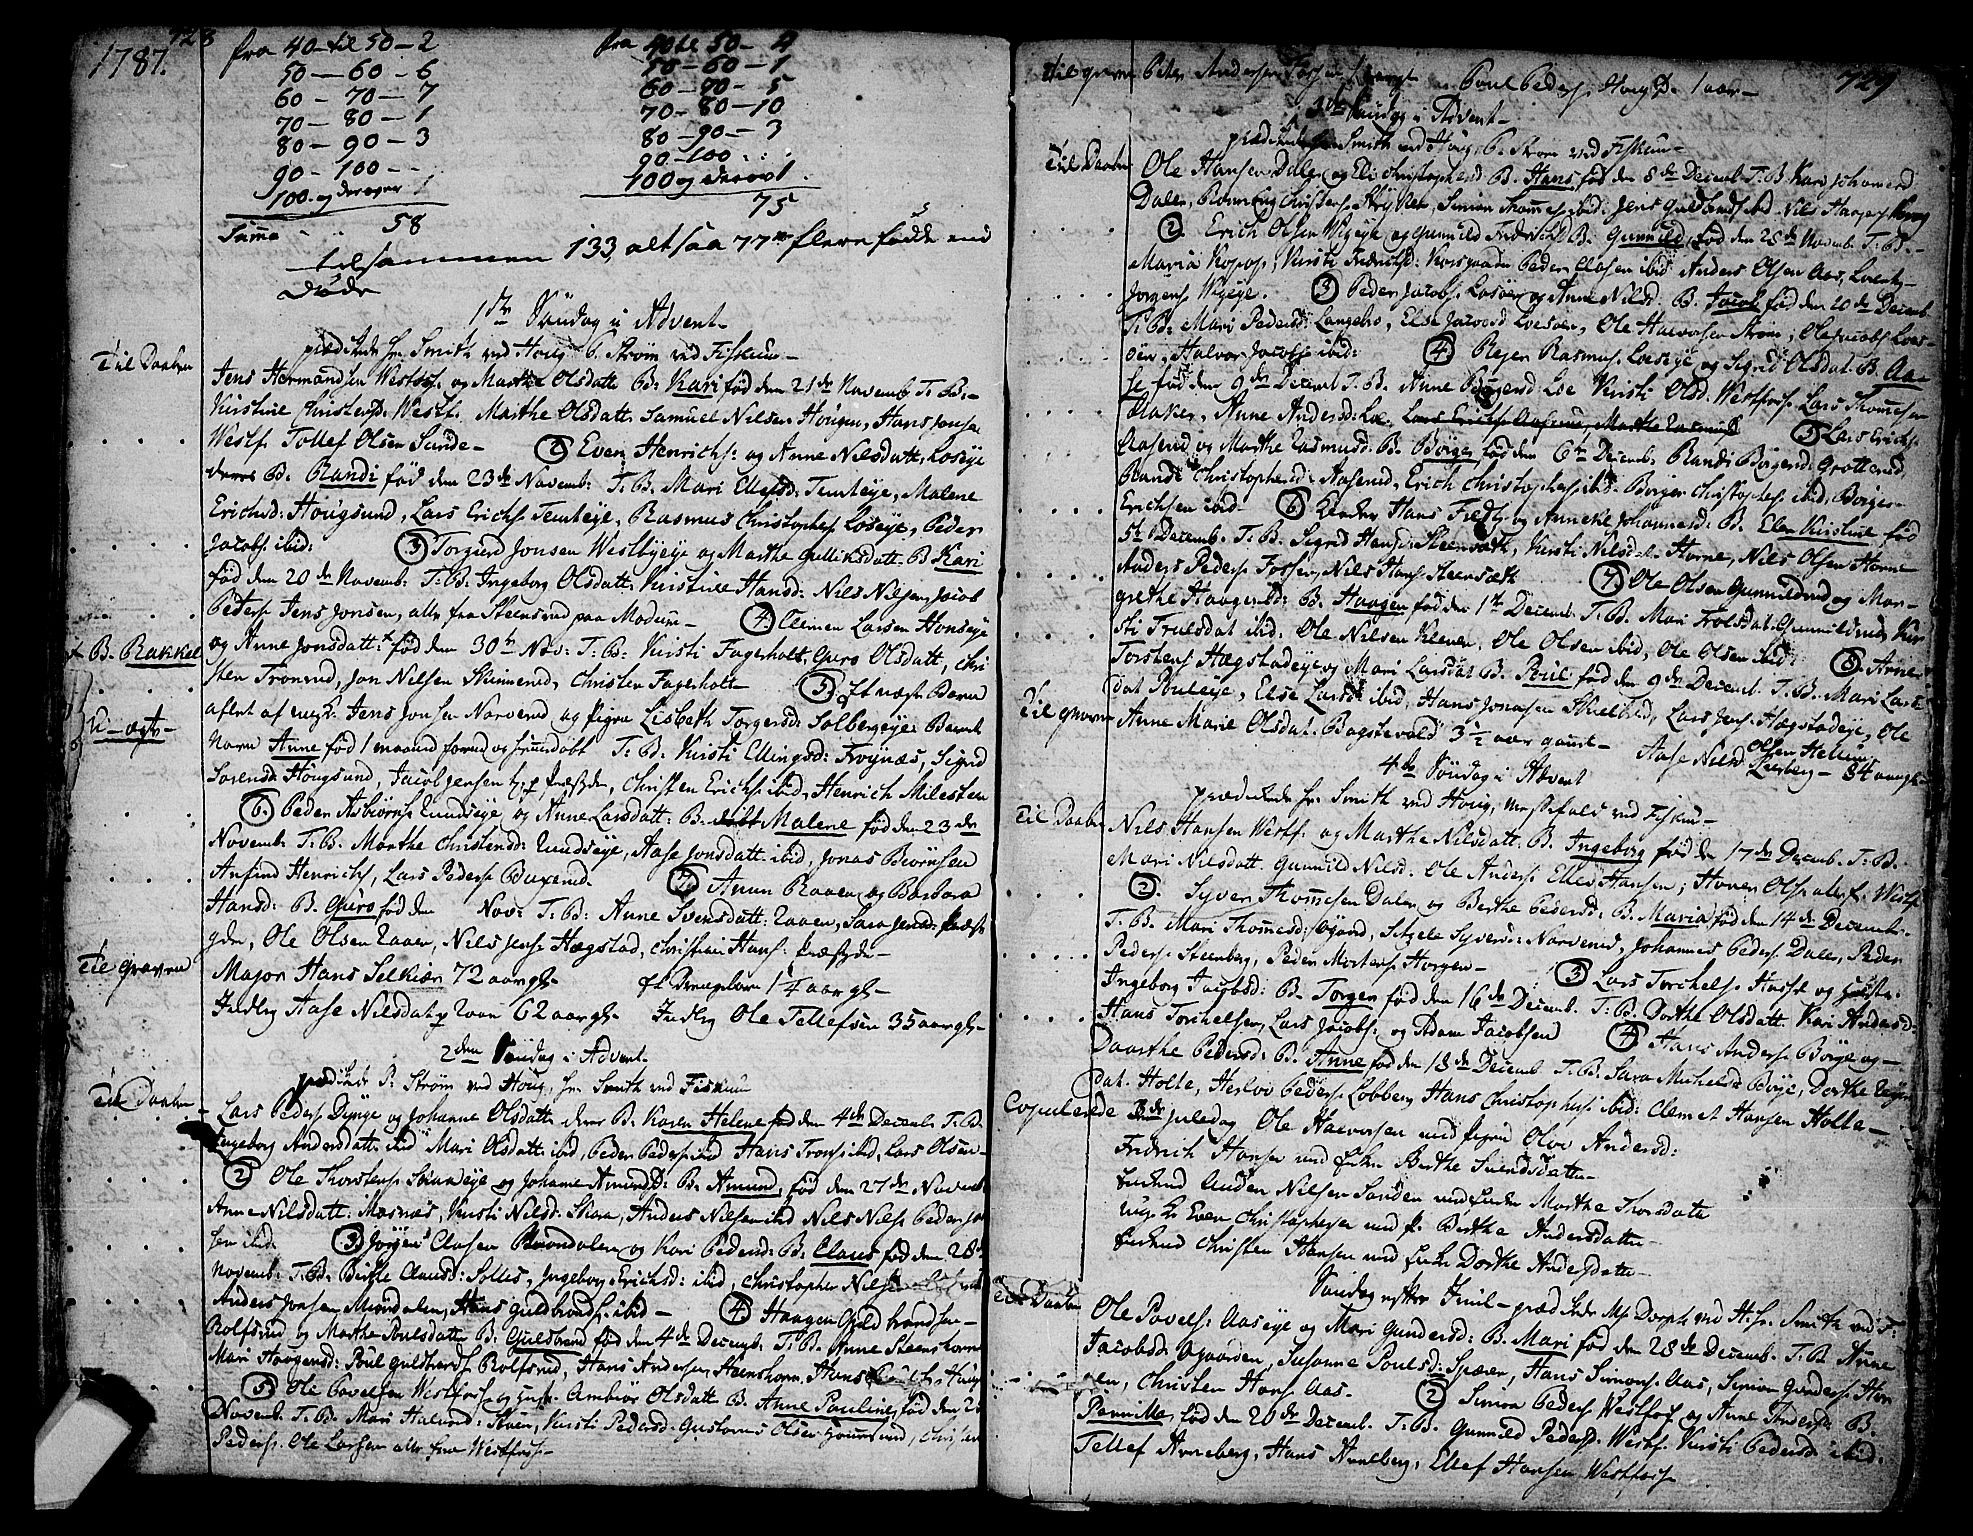 1787.
728
fra 40 til 50 — 2
50 — 60 — 6
60 — 70 — 7
70 — 80 — 1
80 — 90 — 3
90 — 100 — ..
100 og derover 1
Suma 58
fra 40 til 50 — 4
50 — 60 — 1
60 — 70 — 5
70 — 80 — 10
80 — 90 — 3
90 — 100 ..
100 og derov: 1.
75
tilsammen 133, altsaa 77 flere fødde end
Døde
1ste Søndag i Advent —
prædikede hr Smith ved Houg, P. Strøm ved Fiskum —
Til Daaben
Jens Hermandsen Westfoss og Marthe Olsdatte B: Kari fød den 21de Novemb. T. B. —
Kirstine Christersd. Westf. Marthe Olsdatt. Samuel Nilsen Hougen, Hans Jonse
Westf. Tollef Olsen Sunde — (2) Even Henrichs: og Anne Nilsdatt, Loseye
B. Randi fød den 23de Novemb: T. B. Mari Ellefsd: Temteye, Malene
Erichsd: Hougsund, Lars Erichs. Temteye, Rasmus Christophers. Loseye, Peder
Jacobs. ibid: (3) Torgiud Jonsen Westbyeye og Marthe Gulliksdatt. B Kari
fød den 20de Novemb: T. B. Ingeborg Olsdatt. Kirstine Hansd: Nils Nilsen, Jacob
Peders. Jens Jonsen, alle fra Skeensrud paa Modum — (4) Clemen Larsen Honseye
og Anne Jonsdatt. fød den 30te Nov: T. B: Kirsti Fagerholt, Guro Olsdatt, Chri
B. Rakkel
sten Tronrud, Jon Nilsen Skinnerud, Christen Fagerholt — (5) Et uægte Barn
U-ægte
aflet af ungk. Jens Jonsen Narverud og Pigen Lisbeth Torgersd: Solbergeye Barnet
Navn Anne fød 1 maaned forud og hiemdøbt T. B. Kirsti Ellingsd: Frognæs, Sigrid
Sorensd: Hougsund, Jacob Jensen Præstgden, Christen Erichs. ibid, Henrich Milesteen
(6) Peder Asbiørns. Lundseye og Anne Larsdatt: B. Malene fød den 23de
Novemb. T. B. Marthe Christensd: Lundseye, Aase Jonsdatt. ibid, Jonas Beørnsen
Arfind Henrichs, Lars Peders. Buxerud. (7) Amun Raaen og Barbara
Hansd: B. Guro fød den Nov: T. B: Anne Svensdatt: Raaen, Sara Jensd: Præst
gden, Ole Olsen Raaen, Nils Jens. Hægstad, Christian Hans. Præstgden —
Til graven
Major Hans Selkiær 72 aar gl — et Drengebarn 1/4 aar gl —
Inderst Aase Nilsdat. Raaen 62 aar gl — Inderst Ole Tellefsen 35 aar gl —
2den Søndag i Advent.
prædikede P. Strøm ved Houg, hr. Smith ved Fiskum
Til Daaben —
Lars Peders. Dynge og Johanne Olsdatt. B. Karen Helene fød den 4de Decemb. T. B.
Ingeborg Andersdatt. ibid Mari Olsdatt. ibid, Peder Peders. ibid Hans Trons. ibid, Lars Olsen —
(2) Ole Thorstens. Soundeye og Johanne Amundsd: B. Amund, fød den 27de Novemb
Anne Nilsdatt. Mæsnæs, Kirsti Nilsd: Skara, Anders Nilsen ibid Nils Nils. Peder Jon
sen ibid. (3) Jorgen Clasen Miøndalen og Kari Pedersd: B. Claus fød den 28de
Novemb: T. B. Birthe Clausd: Solles, Ingeborg Erichsd: ibid, Christopher Nilsen
Anders Jonsen Miøndalen, Hans Guldbrands. ibid — (4) Haagen Guldbrandsen —
Rolfsrud og Marthe Poulsdatt B. Gulbrand fød den 4de Decemb: T. B. Anne Steenshorne
Mari Haagensd: Poul Guldbrands Rolfsrud, Hans Andersen Steenshorn, Hans
(5) Ole Povelsen Westfoss og Ambiør Olsdatt B. Anne Pauline, fød den 2
Novemb. T. B. Mari Halvord: Kirsti Pedersd: Gustavus Olsen
Peders. Ole Larsen alle fra Westfoss —
729
Til graven Peder Andersen Fossen Poul Peders. Houg 1 aar —
3de Søndag i Advent —
prædikede hr Smith ved Houg, P. Strøm ved Fiskum —
Til Daaben
Ole Hansen Dalen og Eli Christophersd B. Hans fød den 8de Decemb T. B. Kari Johannesd
Dalen, Simon Thommes. ibid. Jens Guldbrands ibid Nils Haagens.
(2) Erich Olsen Wegeye og Gunnild Fredrichsd B. Gunnild, fød den 25de Novemb. T. B. —
Maria Kopop, Kirsti Fredrichsd: Korsgaarden Peder Clasen ibid Anders Olsen Aas, Lorents
Jorgens. Wegeye. (3) Peder Jacobs. Losøen og Anne Nilsd: B. Jacob fød den 20de Decemb
T. B. Mari Pedersd: Langebro, Else Jacobsd Loesøen, Ole Halvorsen Strøm, Ole Jacobs Loes—
øen, Halvor Jacobs. ibid: (4) Rejer Rasmus. Loeseye og Sigrid Olsdat. B. Aa—
se fød den 9de Decemb T. B. Anne Børgersd: Loe Kirsti Olsd. Westfoss. Lars Thommesen
Aaker, Anne Andersd: Loe (5) Lars Erichs.
Aaserud og Marthe Rasmusd: B. Børger fød den 6te Decemb: Randi Børgersd: Grotterud,
Randi Christophersd: Aaserud, Erich Christophers. ibid. Børger Christophers. ibid. Børger
Erichsen ibid — (6) Hans Fredr. og Anneke Johannesd: B. Elen Kirstine fød
5te Decemb. T. B. Sigrid Hansd: Steensæth, Kirsti Nilsdat. Horne, Nils Olsen Horne
Anders Peders. Fossen, Nils Hans. Steensæth (7) Ole Olsen Gunnildrud og Mar—
grethe Haagensd: B. Haagen fød den 1ste Decemb: T. B. Mari Trolsdat: Gunnildrud, Kir
sti Trulsdat ibid. Ole Nilsen Klever, Ole Olsen ibid, Ole Olsen ibid: (8) Arne
Torstens. Hægstadeye og Mari Larsdat B. Poul fød den 9de Decemb. T. B. Mari Lars
dat Puleye, Else Larsd: ibid, Hans Jonasen Skielbred, Lars Jens. Hægstadeye, Ole
Til graven
Olsen Hellum,
Anne Marie Olsdat. Bagstevold 3 1/2 aar gaml — Aase Nilsd. Leerberg — 84 aar gl —
4de Søndag i Advent
prædikede hr. Smith ved Houg, messefald ved Fiskum —
Til Daaben
Nils Hansen Westf. og Marthe Nilsdatt. B. Ingeborg fød den 17de Decemb. T. B.
Mari Nilsdatt. Gunnild Nilsd. Ole Anders. Ellev Hansen, Haven Ols. alle f. Westf.
(2) Syver Thommesen Dalen og Berthe Pedersd: B. Maria fød den 14de Decemb.
T. B. Mari Thomesd: Øgard, Sitzele Syversd: Narverud, Johannes Peders. Dalen, Peder
Peders. Steenberg, Peder Mortens. Horgen — (3) Lars Torchels. Hasse og
Ingeborg Jacobsd: B. Torger fød den 16de Decemb. T. B. Dorthe Olsdatt. Kari Andersd:
Hans Torchelsen, Lars Jacobs. og Adam Jacobsen (4) Hans Anders. Børge og —
Daarthe Pedersd: B. Anne fød den 18de Decemb T. B. Sara Michelsd Børge, Dorthe
dat. Holte, Herlov Peders. Lobberg Hans Christophers. ibid: Clemet Hansen Holte —
Copulerede
3de Juledag Ole Halvorsen med Pigen Olov Andersd:
Fredrich Hansen med Enken Berthe Svendsdatte —
Enkemd Auden Nilsen Sanden med Enken Marthe Thorsdatte
ungk. Even Christophersen med p. Berthe Andersdatte —
Enkemd Christen Hansen med Enke Dorthe Andersdatte —
Søndag efter Juul — prædikede Mr Dorph ved H. hr. Smith ved F:
Til Daaben
Ole Povels. Aaseye og Mari Gundersd: B. Mari fød den 28de Decemb. T. B Anne
Jacobsd: Ogaarden, Susanne Poulsd: Spæren, Hans Simons. Aas, Simon Gunders. Hor
gen, Christen Hans. Aas. (2) Simon Peders. Westfos og Anne Andersd B.
Pernille, fød den 20de Decemb. T. B. Gunnild Pedersd. Westf. Kirsti Pedersd: ibid.
Tellef Anneberg, Hans Anneberg, Ellef Hansen Westfoss.